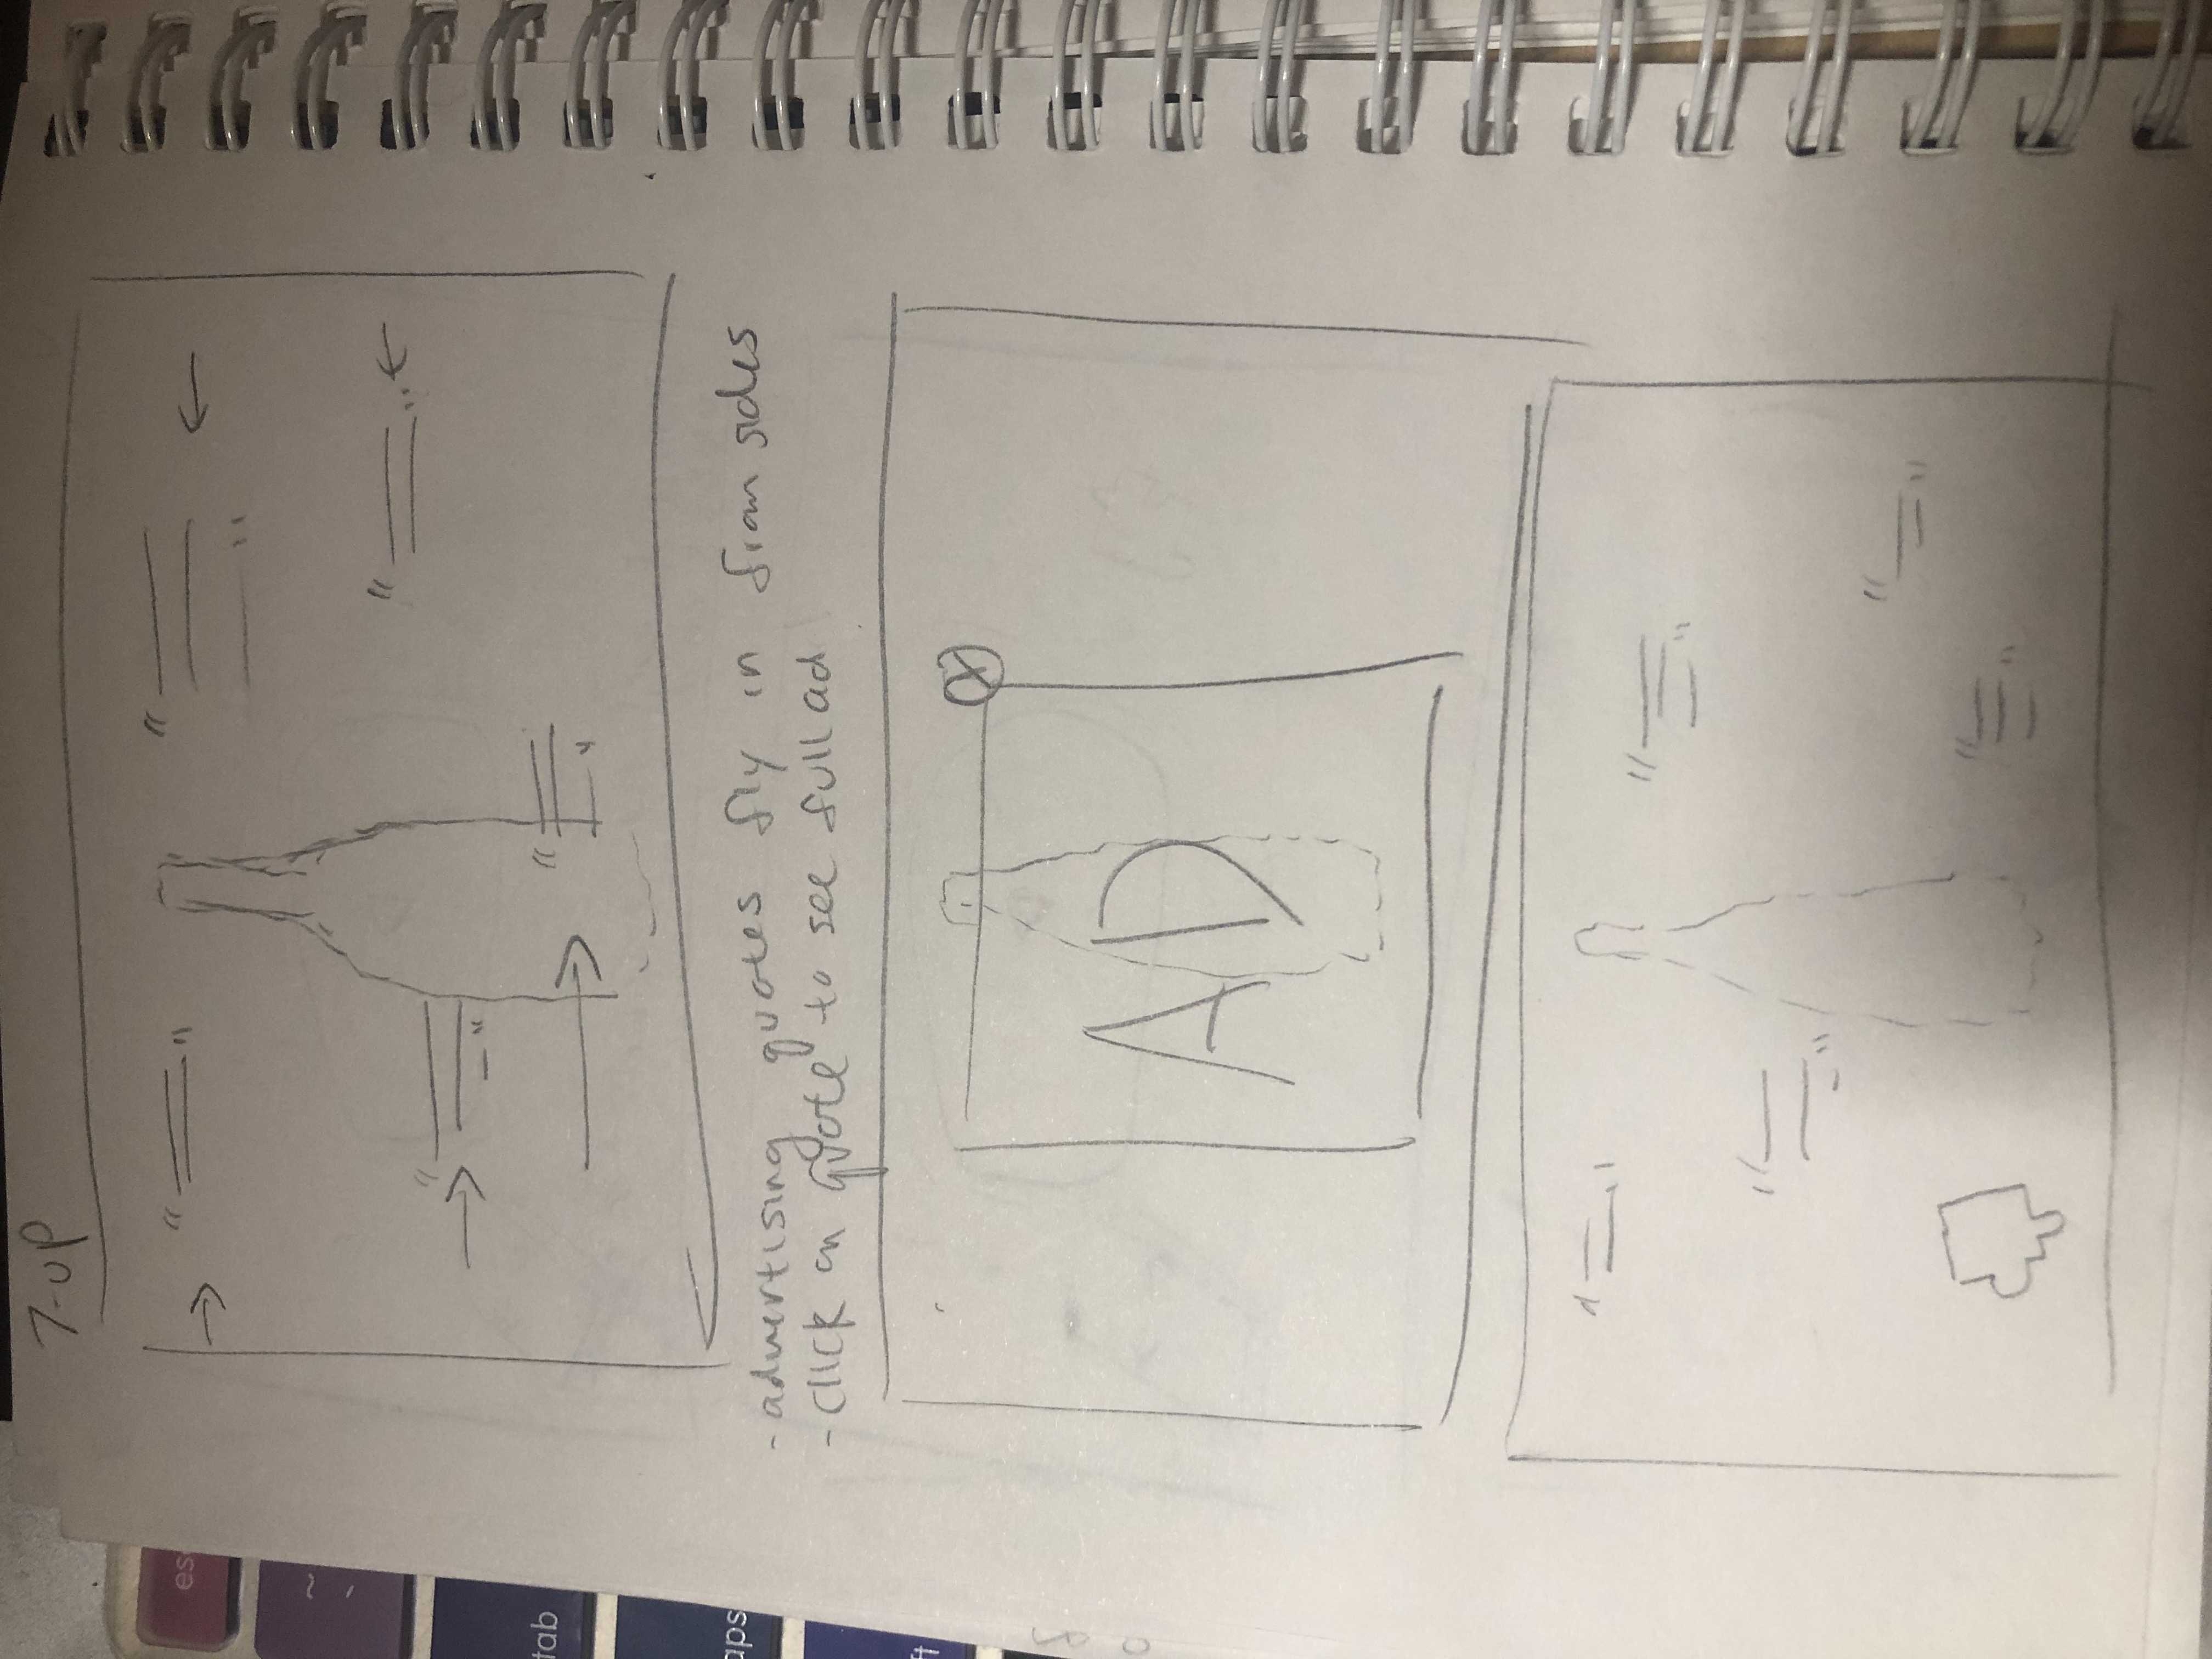 7-UP
- advertising quotes fly in from sides
- click on quote to see full ad
AD
X
esc
~
tab
caps